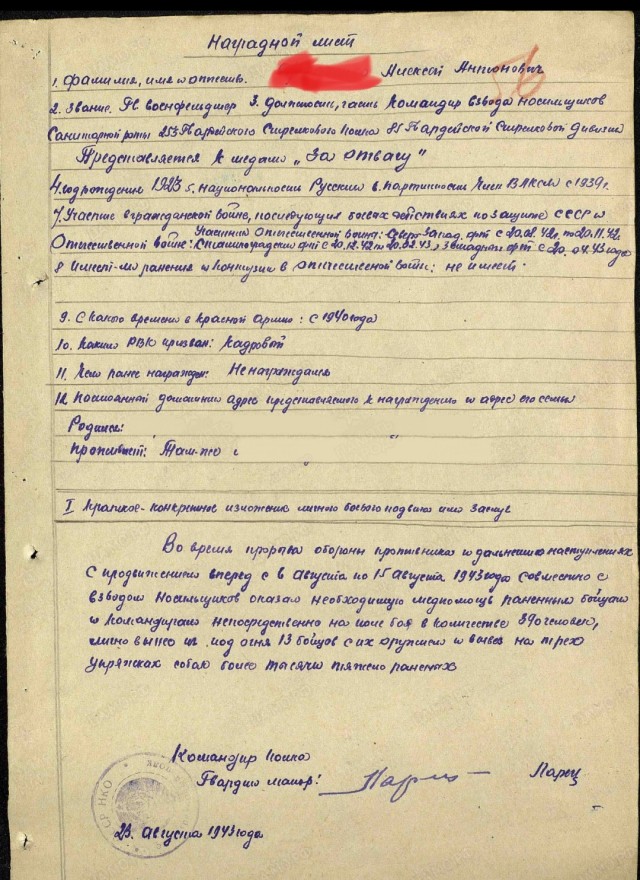 Наградной лист
56
1. Фамилия, имя и отчество. Алексей Антонович
2. Звание. Гв военфельдшер 3. Должность, часть Командир взвода носильщиков
Санитарной роты 253 Гвардейского Стрелкового Полка 85 Гвардейской Стрелковой Дивизии
Представляется к медали „За отвагу"
4. год рождения 1923 г. национальность Русский в. партийность Член ВЛКСМ с 1939 г.
7. Участие в гражданской войне, последующих боевых действиях по защите СССР и
Отечественной войне: Участник Отечественной войны: Северо Запад. фрт с 20.02.42г. по 20.11.42
Сталинградский фрт с 20.12.42 по 20.02.43, Западный фрт с 20.04.43 года
8 Имеет-ли ранения и контузии в отечественной войне: не имеет.
9. С какого времени в Красной Армии: с 1940 года
10. Каким РВК призван: Кадровой
11. Чем ранее награжден: Не награждался
12. Постоянной домашний адрес представляемого к награждению и адрес его семьи
Родился:
проживает: Там-же
I Краткое-конкретное изложение личного боевого подвига или заслуг
Во время прорыва обороны противника и дальнейшего наступления
С продвижением вперед с 6 Августа по 15 Августа 1943 года совместно с
взводом носильщиков оказал необходимую медпомощь раненным бойцам
и командирам непосредственно на поле боя в количестве 390 человек,
лично вынес из под огня 13 бойцов с их оружием и вывез на трех
упряжках собак более тысячи тяжело раненых
Командир Полка
Гвардии майор: Парец
23. Августа 1943 года
СССР НКО